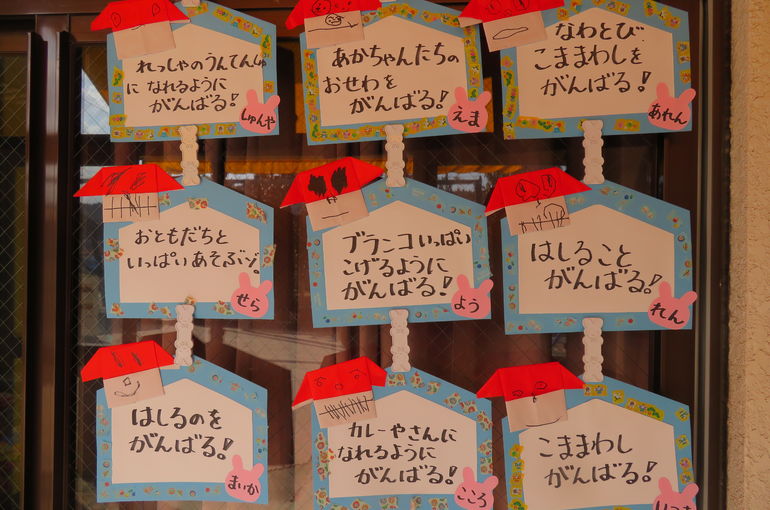 れっしゃのうんてんしゅ
になれるように
がんばる!
しゅんや
あかちゃんたちの
おせわを
がんばる!
えま
なわとび
こままわしを
がんばる!
あれん
おともだちと
いっぱいあそぶゾ。
せら
ブランコいっぱい
こげるように
がんばる!
よう
はしること
がんばる!
れん
はしるのを
がんばる!
まいか
カレーやさんに
なれるように
がんばる!
こころ
こままわし
がんばる!